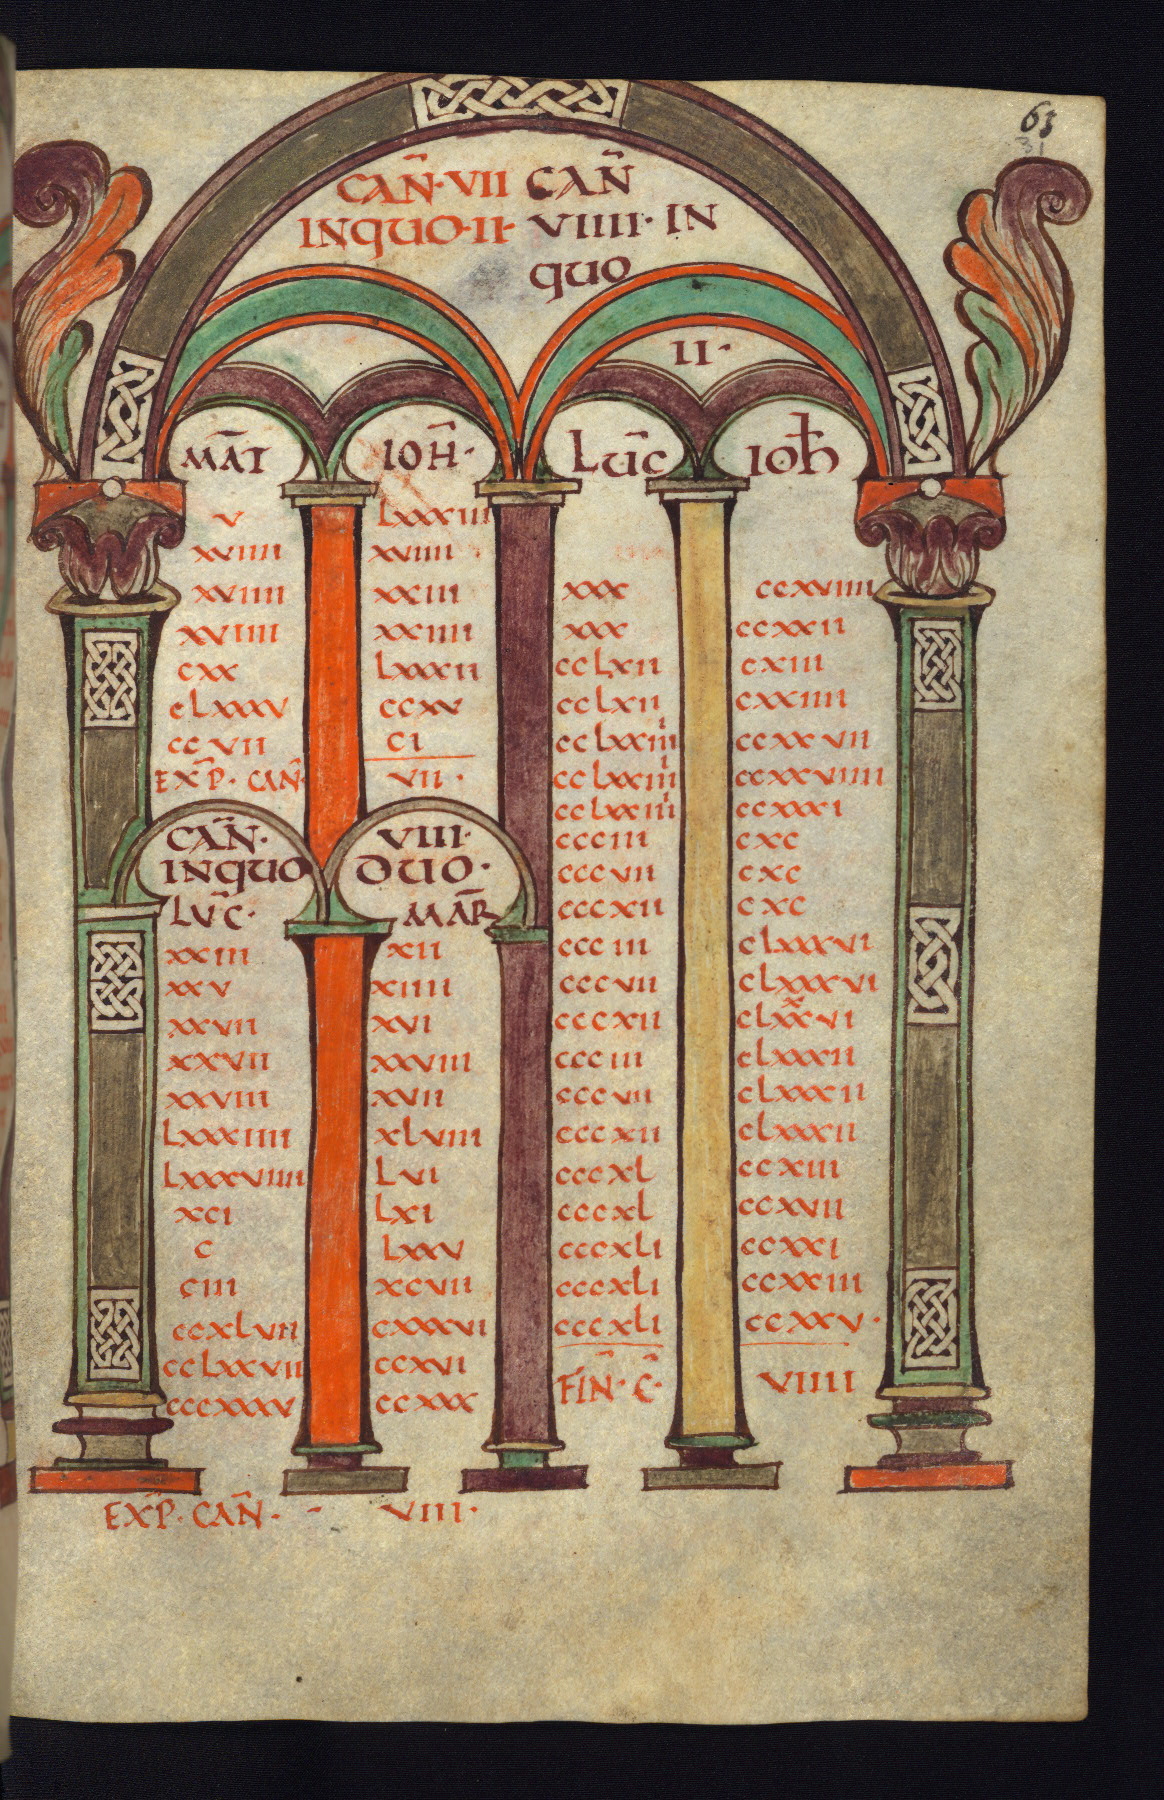 63
31
CAN̄·VII CAN̄
INQUO·II· VIIII· IN
QUO
II·
MAT̄ IOH̄·
V LXXXIII
XVIIII XVIIII
XVIIII XXIII
XVIIII XXIIII
CXX LXXXII
CLXXXV CCXV
CCVII CI
EXP̄· CAN̄· VII·
CAN̄· VIII·
INQUO DUO·
LUC̄· MAR̄
XXIII XII
XXV XIIII
XXVII XVI
XXVII XXVIII
XXVIII XVII
LXXXIIII XLVIII
LXXXVIIII LVI
XCI LXI
C LXXV
CIII XCVII
CCXLVII CXXXVI
CCLXXVII CCXVI
CCCXXXV CCXXX
EXP̄· CAN̄· VIII·
LUC̄ IOH̄
XXX CCXVIIII
XXX CCXXII
CCLXII CXIII
CCLXII CXXIIII
CCLXXIIII CCXXVII
CCLXXIIII CCXXVIIII
CCLXXIIII CCXXXI
CCCIII CXC
CCCVII CXC
CCCXII CXC
CCCIII CLXXXVI
CCCVII CLXXXVI
CCCXII CLXXXVI
CCCIII CLXXXII
CCCVII CLXXXII
CCCXII CLXXXII
CCCXL CCXIII
CCCXL CCXVII
CCCXLI CCXXI
CCCXLI CCXXIII
CCCXLI CCXXV·
FIN̄· C̄· VIIII